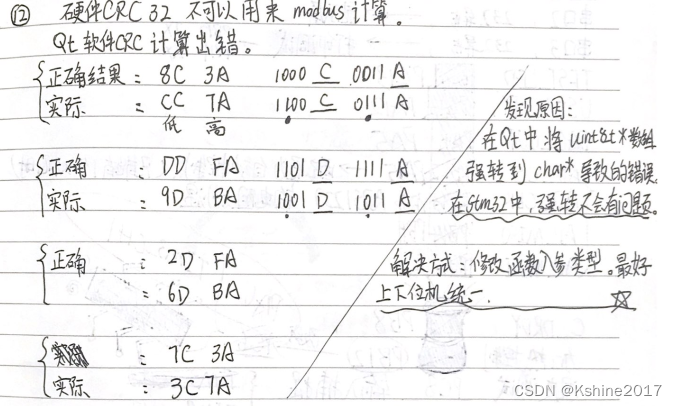 ⑫ 硬件CRC32 不可以用来 modbus 计算。
Qt 软件CRC 计算出错。
正确结果: 8C 3A 1000 C 0011 A
实际: CC 7A 1100 C 0111 A
低 高
正确: DD FA 1101 D 1111 A
实际: 9D BA 1001 D 1011 A
正确: 2D FA
: 6D BA
: 7C 3A
实际: 3C 7A
发现原因:
在Qt中将 uint8t*数组
强转到 char* 导致的错误
在stm32中,强转不会有问题。
解决方式:修改函数入参类型。最好
上下位机统一.
CSDN @Kshine2017